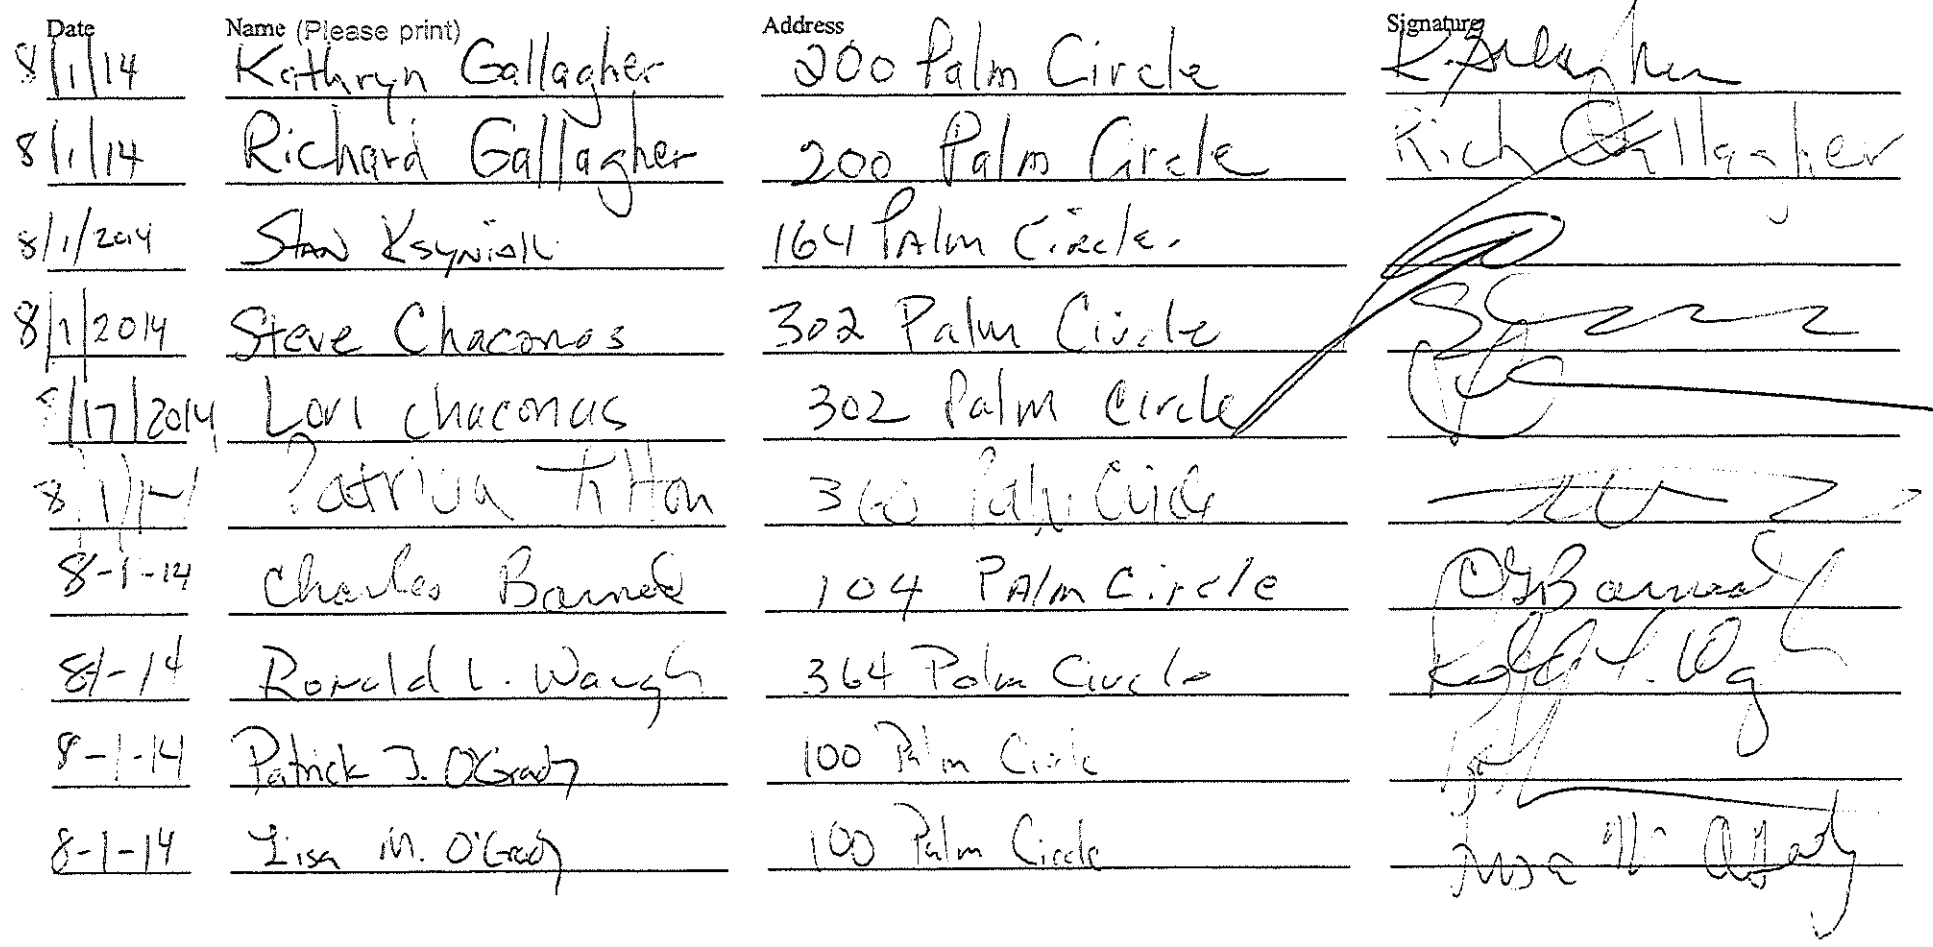 Date Name (Please print) Address Signature
8/1/14 Kathryn Gallagher 200 Palm Circle K. Gallagher
8/1/14 Richard Gallagher 200 Palm Circle Rich Gallagher
8/1/2014 Stan Ksyniak 164 Palm Circle.
8/1/2014 Steve Chaconas 302 Palm Circle
8/17/2014 Lori Chaconas 302 Palm Circle
8/1/14 Patricia Titton 360 Palm Circle
8-1-14 Charles Barned 104 Palm Circle
8-1-14 Ronald L. Waugh 364 Palm Circle
8-1-14 Patrick J. O'Grady 100 Palm Circle
8-1-14 Lisa M. O'Grady 100 Palm Circle Lisa M O'Grady